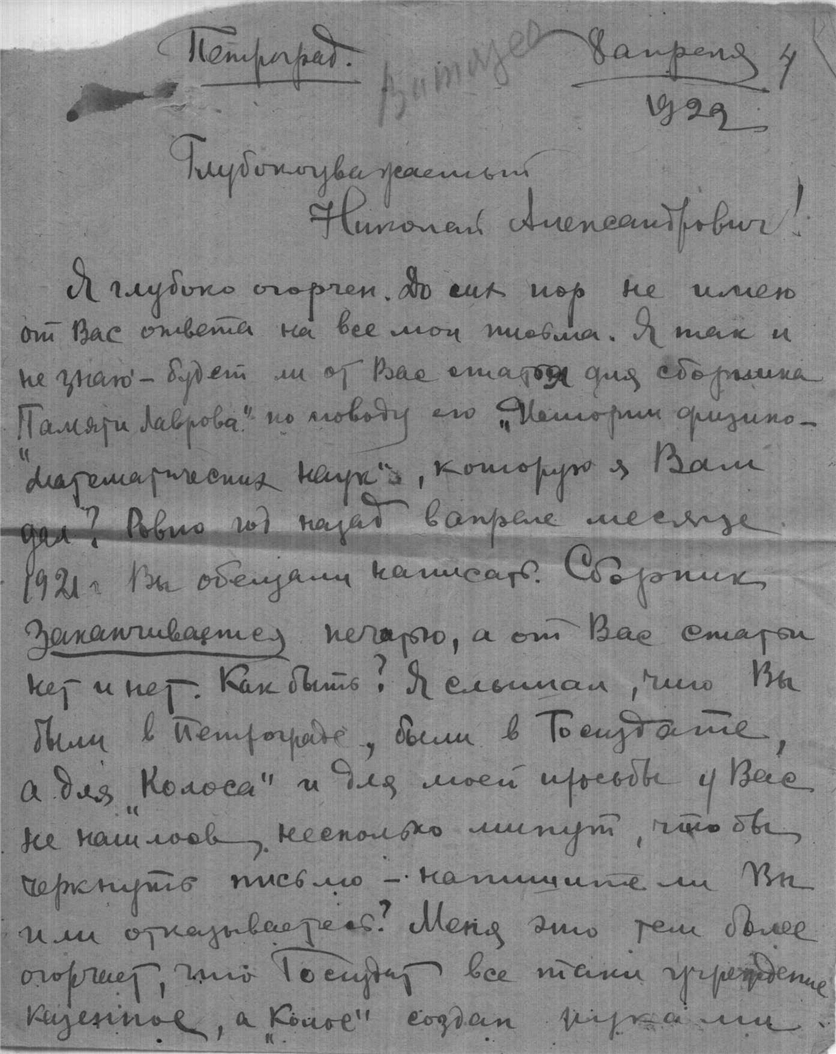 Петроград.
Витязев
8 апреля 4
1922
Глубокоуважаемый
Николай Александрович!
Я глубоко огорчен. До сих пор не имею
от Вас ответа на все мои письма. Я так и
не знаю – будет ли от Вас статья для сборника
"Памяти Лаврова" по поводу его „Истории физико-
математических наук", которую я Вам
дал? Ровно год назад в апреле месяце
1921 г Вы обещали написать. Сборник
заканчивается печатью, а от Вас статьи
нет и нет. Как быть? Я слышал, что Вы
были в Петрограде, были в Госиздате,
а для „Колоса" и для моей просьбы у Вас
не нашлось несколько минут, что бы
черкнуть письмо – напишите ли Вы
или отказываетесь? Меня это тем более
огорчает, что Госиздат все таки учреждение
казенное, а „Колос" создан руками